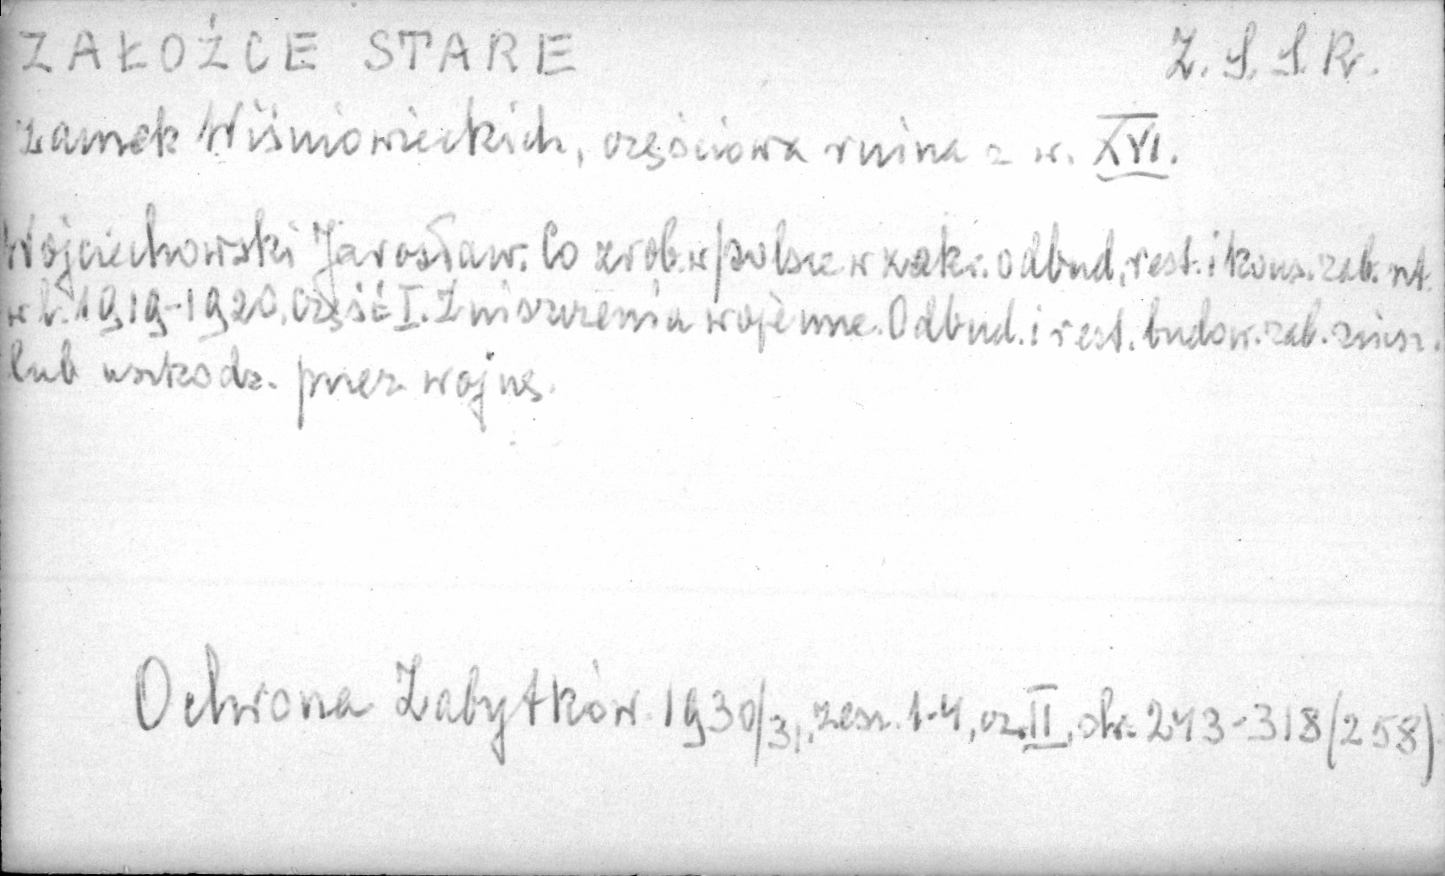 ZAŁOŹCE STARE Z.S.S.R.
zamek Wiśniowieckich, częściowa ruina z w. XVI.
Wojciechowski Jarosław. Co zrob. w Polsce w zakr. odbud., rest. i kons. zab. szt.
w l. 1919-1920. Część I. Zniszczenia wojenne. Odbud. i rest. budow. zab. znisz.
lub uszkodz. przez wojnę.
Ochrona Zabytków 1930/31, zesz. 1-4, cz. II, str. 243-318 (258)